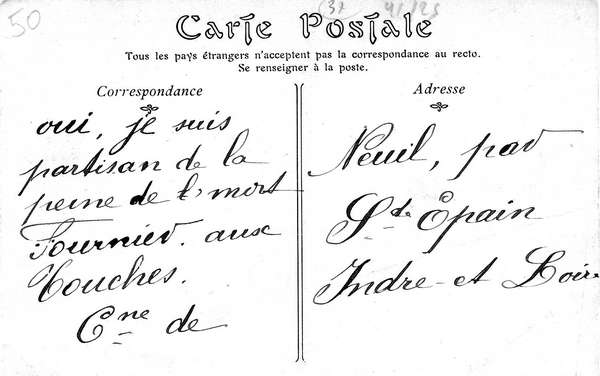 50
Carte Postale
Tous les pays étrangers n'acceptent pas la correspondance au recto.
Se renseigner à la poste.
Correspondance
oui, je suis
partisan de la
peine de l'mort
Fournier. aux
Touches.
Cne de
Adresse
Neuil, par
Ste Epain
Indre et Loire